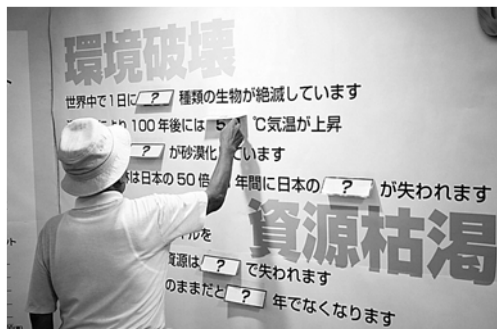 環境破壊
世界中で1日に ? 種類の生物が絶滅しています
より100年後には 5 ℃気温が上昇
? が砂漠化 ています
林は日本の50倍 年間に日本の ? が失われます
資源枯渇
イルを
資源は ? で失われます
のままだと ? 年でなくなります